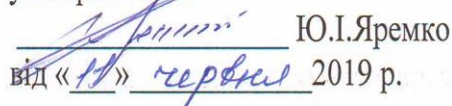 Ю.І.Яремко
від «11» червня 2019 р.